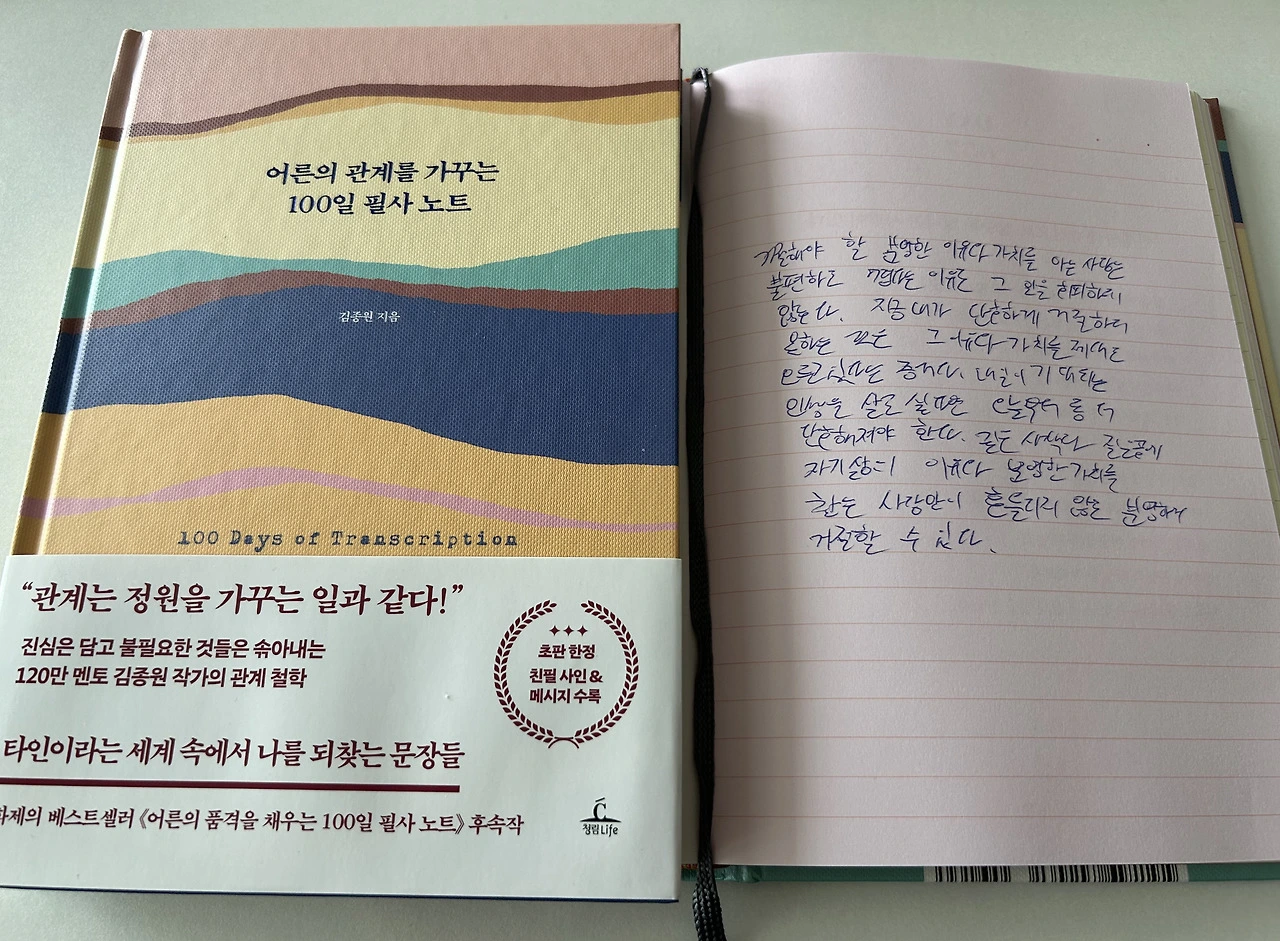 어른의 관계를 가꾸는
100일 필사 노트
김종원 지음
100 Days of Transcription
“관계는 정원을 가꾸는 일과 같다!”
진심은 담고 불필요한 것들은 솎아내는
120만 멘토 김종원 작가의 관계 철학
초판 한정
친필 사인 &
메시지 수록
타인이라는 세계 속에서 나를 되찾는 문장들
화제의 베스트셀러 《어른의 품격을 채우는 100일 필사 노트》 후속작
청림Life
거절해야 할 분명한 이유와 가치를 아는 사람은
불편하고 이유로 그 일을 회피하지
않는다. 지금 내가 단호하게 거절하지
못하는 것은 그 이유와 가치를 제대로
모르고 있다는 증거다. 내일이 기대되는
인생을 살고 싶다면 오늘부터 좀 더
단호해져야 한다. 깊은 사색과 질문끝에
자기 삶의 이유와 분명한 가치를
찾는 사람만이 흔들리지 않고 분명하게
거절할 수 있다.